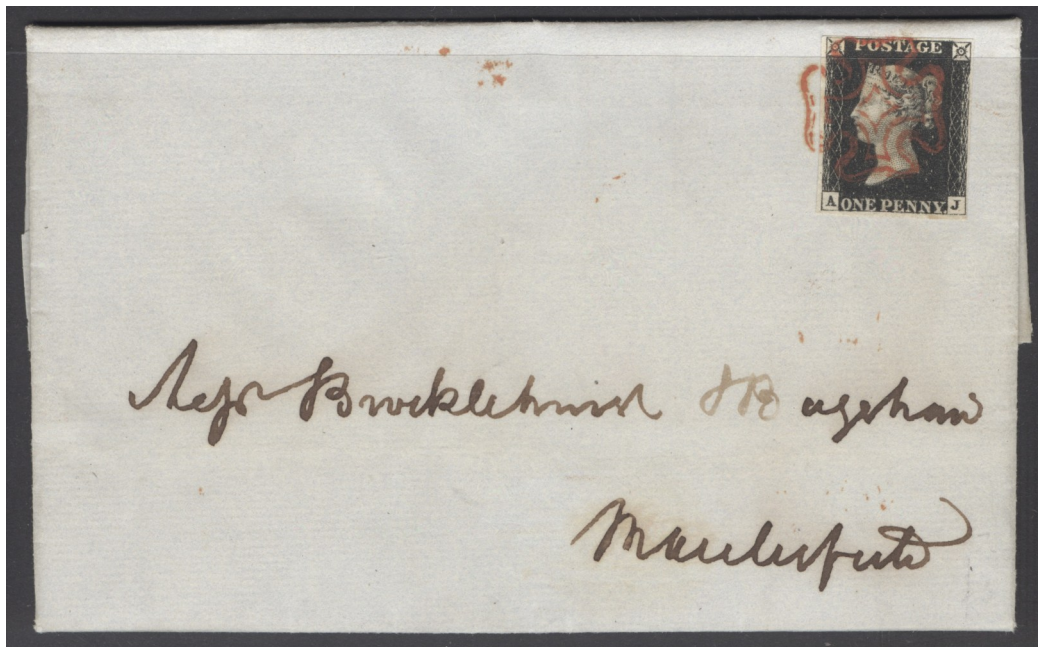 POSTAGE
A ONE PENNY. J
Messrs Brocklehurst & Bagshaw
Macclesfield